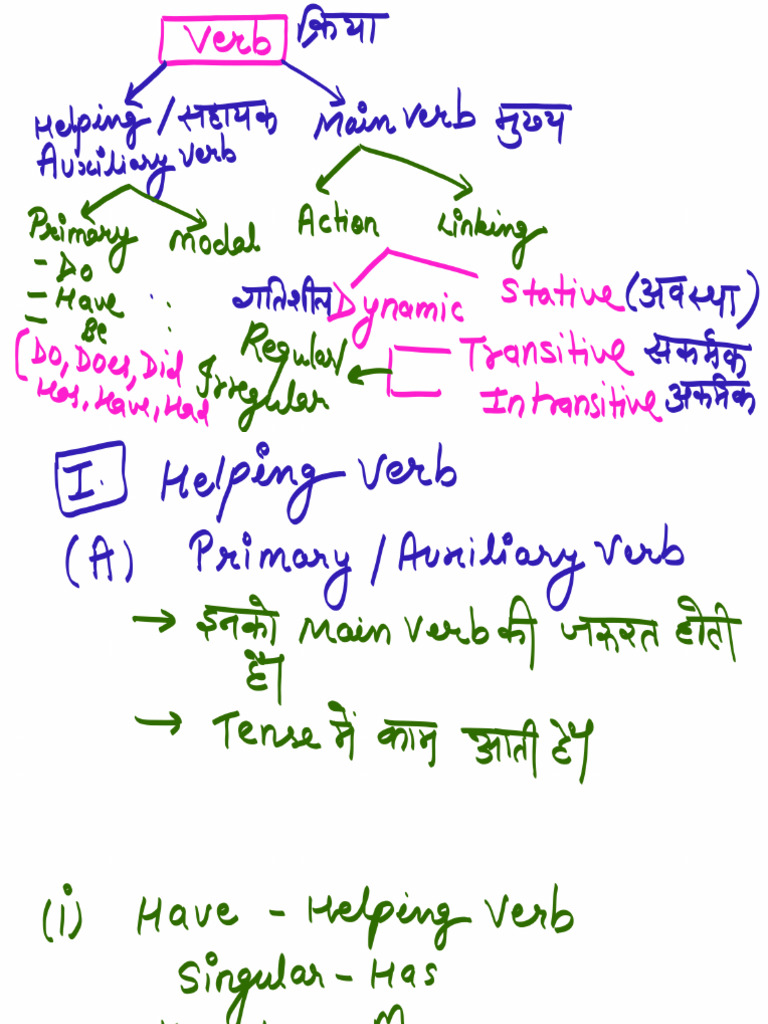 Verb क्रिया
Helping / सहायक Main verb मुख्य
Auxiliary verb
Primary Modal Action Linking
- Do
- Have
- Be
गतिशील Dynamic Stative (अवस्था)
Regular Transitive सकर्मक
(Do, Does, Did Irregular Intransitive अकर्मक
Has, Have, Had
I. Helping Verb
(A) Primary / Auxiliary Verb
→ इनको Main Verb की जरूरत होती
है।
→ Tense में काम आती है।
(i) Have - Helping Verb
Singular - Has